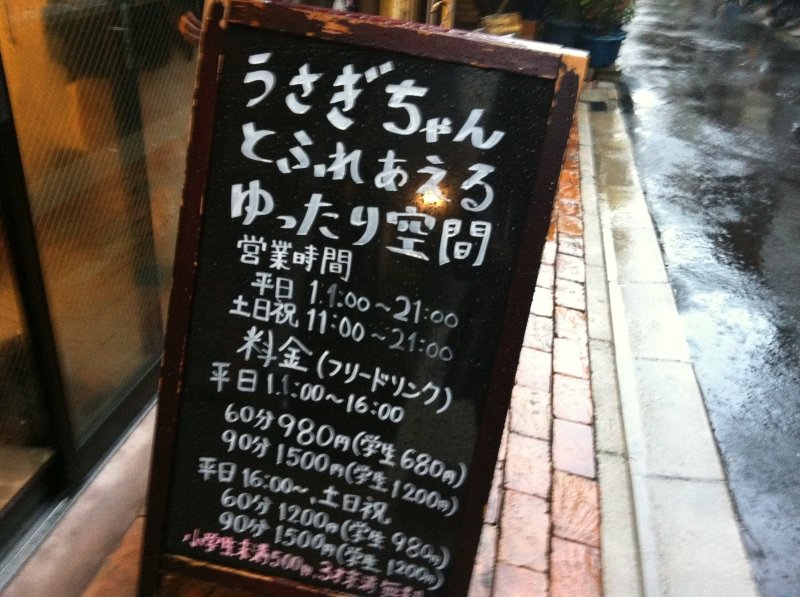 うさぎちゃん
とふれあえる
ゆったり空間
営業時間
平日 11:00〜21:00
土日祝 11:00〜21:00
料金(フリードリンク)
平日11:00〜16:00
60分980円(学生680円)
90分1500円(学生1200円)
平日16:00〜、土日祝
60分1200円(学生980円)
90分1500円(学生1200円)
小学生未満500円、3才未満無料